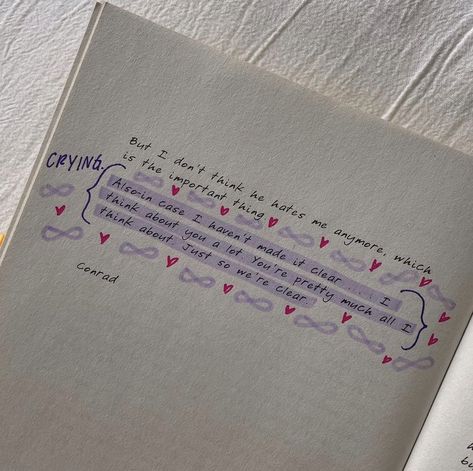 CRYING.
But I don't think he hates me anymore, which
is the important thing
Also-in case I haven't made it clear.... I
think about you a lot You're pretty much all I
think about Just so we're clear.
Conrad